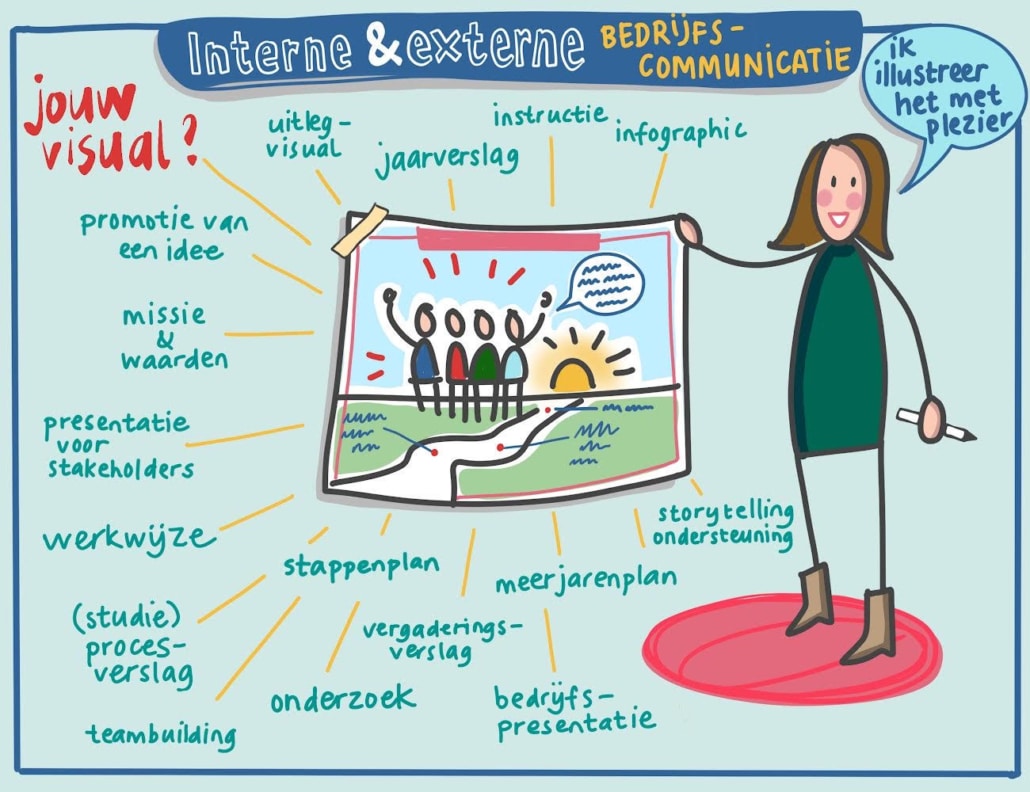 Interne & externe BEDRIJFS-
COMMUNICATIE
ik
illustreer
het met
plezier
jouw
visual?
uitleg-
visual
jaarverslag
instructie
infographic
promotie van
een idee
missie
&
waarden
presentatie
voor
stakeholders
werkwijze
(studie)
proces-
verslag
teambuilding
stappenplan
onderzoek
vergaderings-
verslag
meerjarenplan
bedrijfs-
presentatie
storytelling
ondersteuning